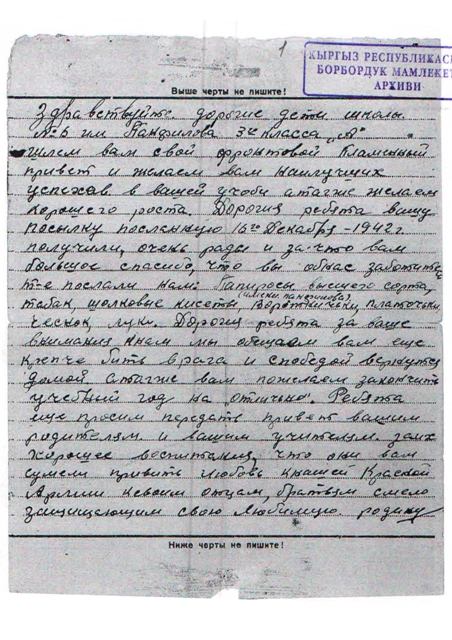 1
КЫРГЫЗ РЕСПУБЛИКАС
БОРБОРДУК МАМЛЕКЕТ
АРХИВИ
Выше черты не пишите!
Здравствуйте дорогие дети школы
№6 им Панфилова 3го класса "А"
шлем вам свой фронтовой пламенный
привет и желаем вам наилучших
успехав в вашей учоби атагже желаем
хорошего роста. Дорогия ребята вашу
посылку посланную 16го Декабря-1942г.
получили, очень рады и за-что вам
большое спасибо, что вы обнас заботитесь
т-е послали нам: Папиросы высшего сорта,
табак, шолковые кисеты, Воротнички, платочьки
чеснок, лук. Дорогия ребята за ваше
внимания кнам мы обещаем вам еще
крепче бить врага и спобедой вернутся
домой. атагже вам пожелаем закончить
учебный год на отлично. Ребята
еще просим передать привет вашим
родителям и вашим учителям заих
хорошее воспитания, что они вам
сумели привить любовь кнашей Красной
Армии ксвоим отцам, братьям смело
защищающим свою любимую родину
Ниже черты не пишите!